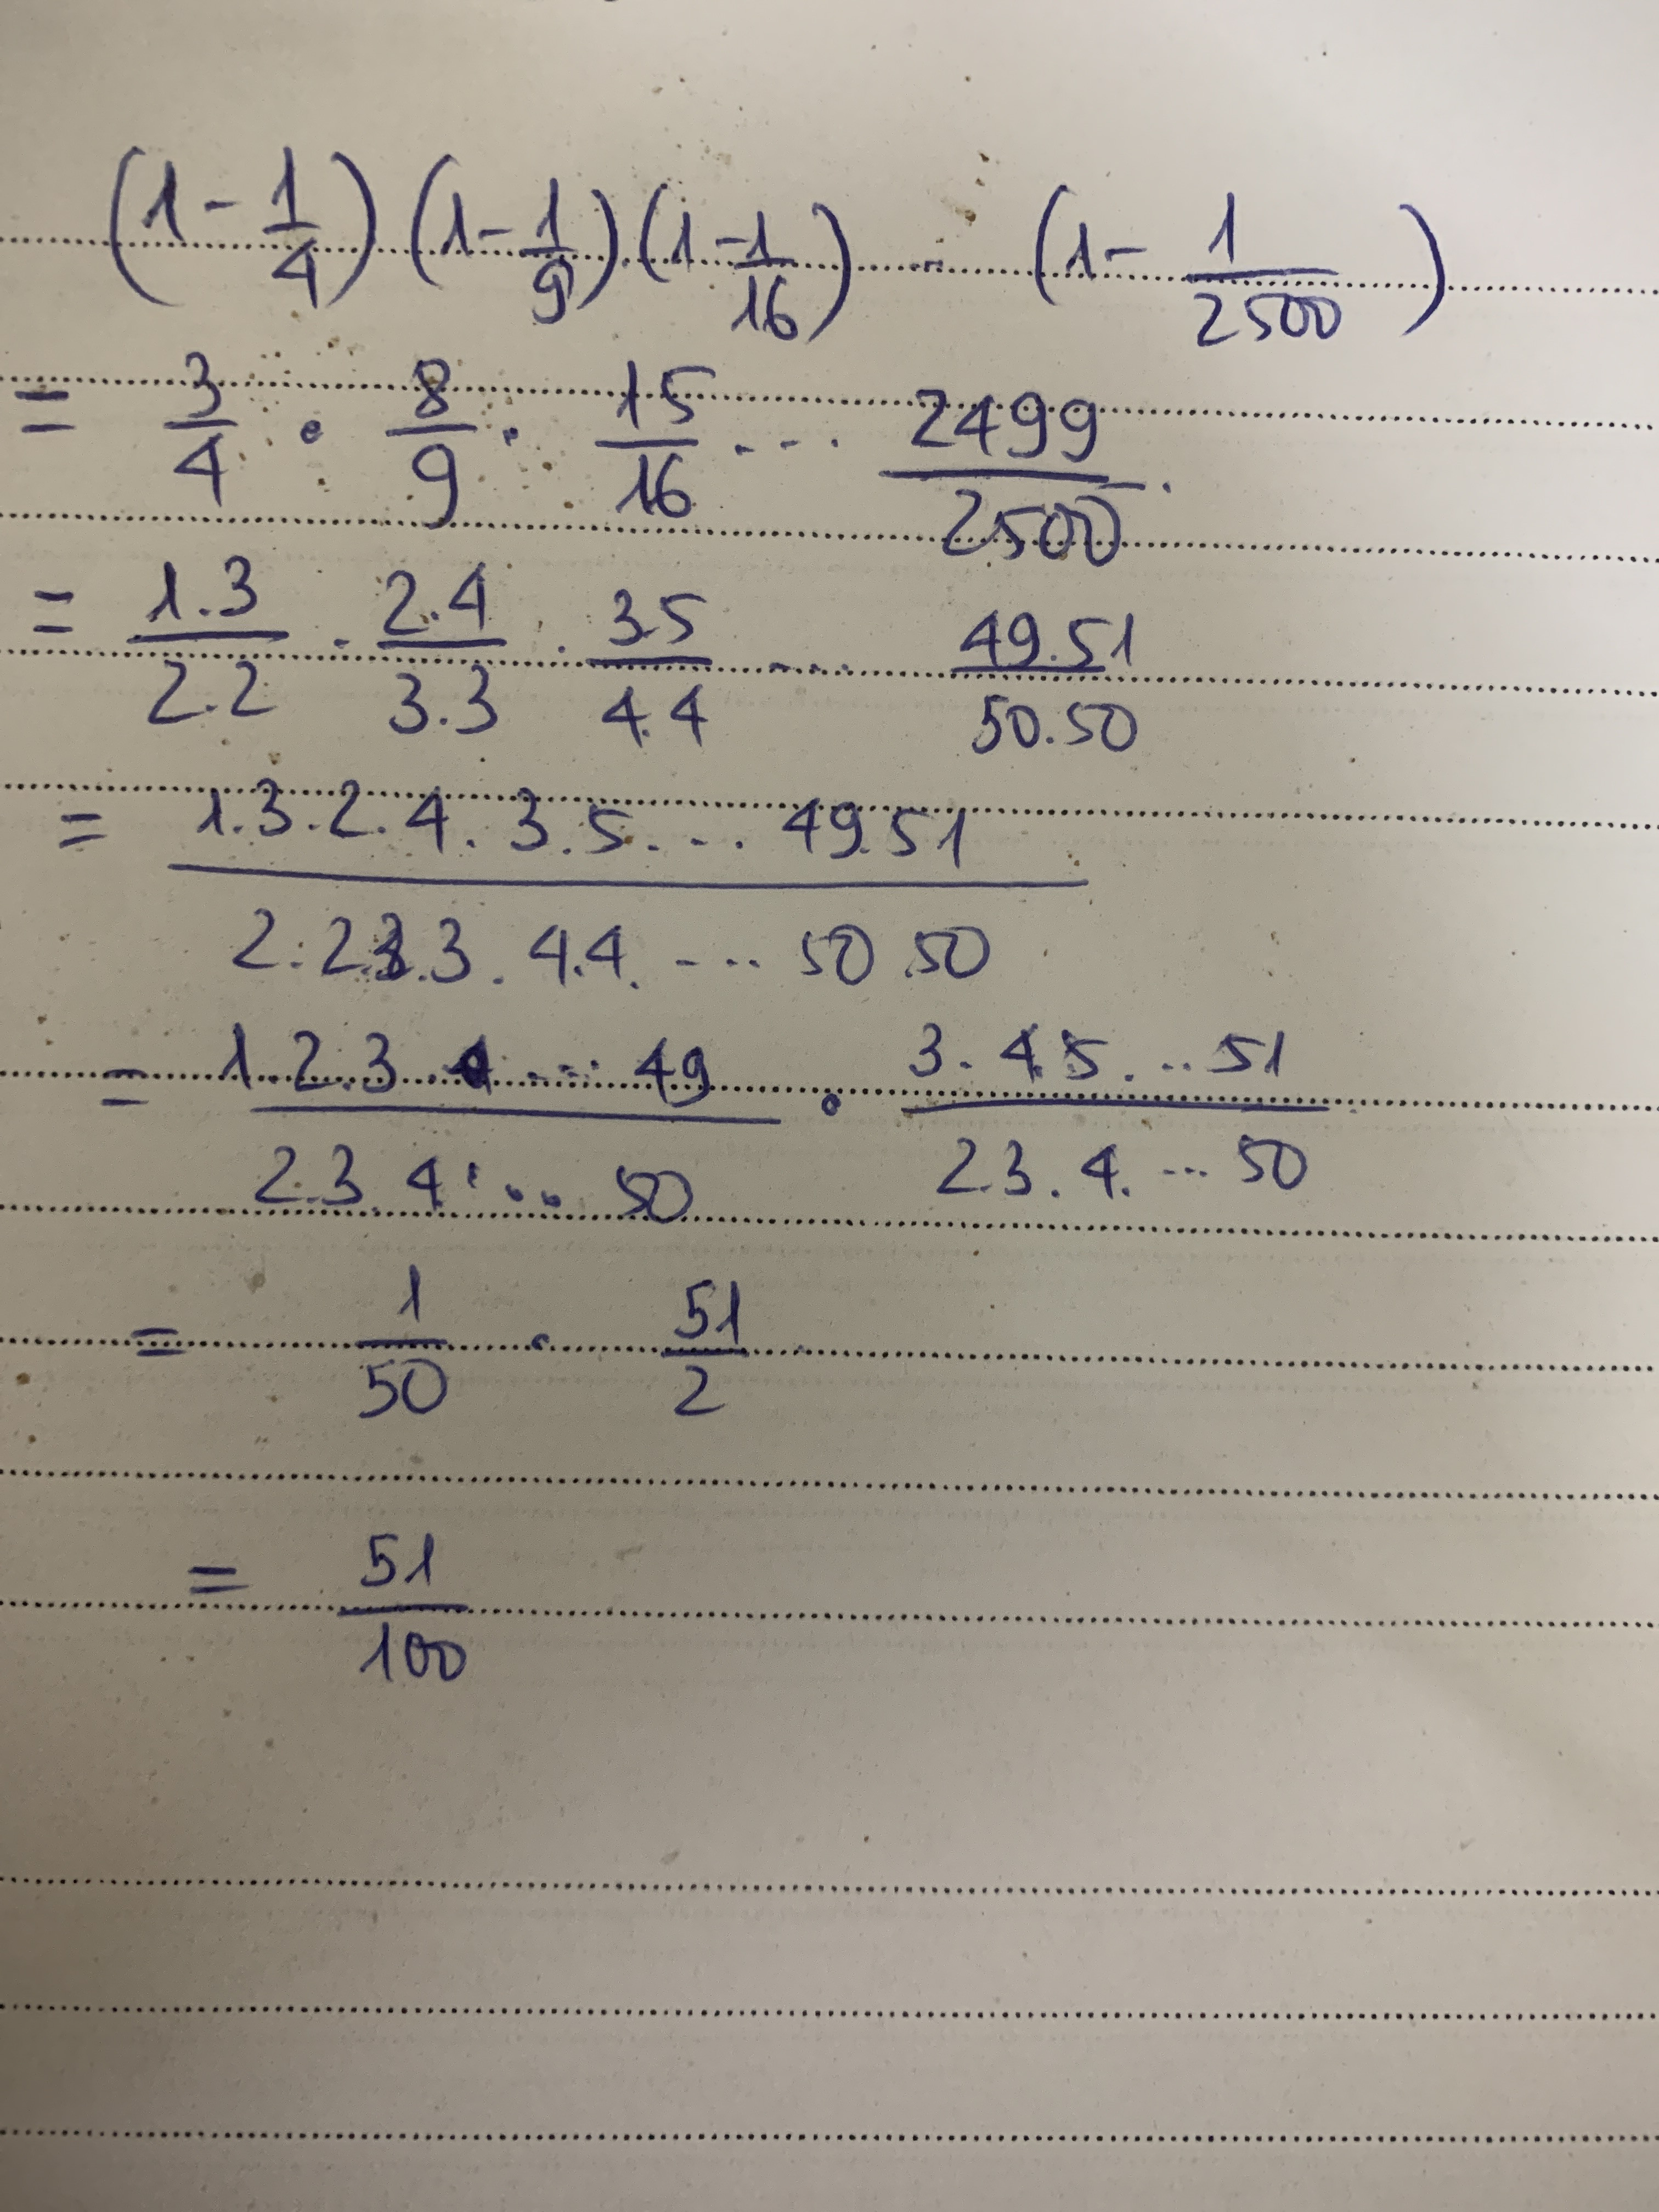 (1 - 1/4) (1 - 1/9) . (1 - 1/16) ... (1 - 1/2500)
= 3/4 . 8/9 . 15/16 .... 2499/2500 .
= 1.3/2.2 . 2.4/3.3 . 3.5/4.4 .... 49.51/50.50
= 1.3.2.4.3.5. ... 49.51 / 2.2.3.3.4.4. ... 50.50
= 1.2.3.4 ... 49 / 2.3.4. ... 50 . 3.4.5. ... 51 / 2.3.4. ... 50
= 1/50 . 51/2
= 51/100